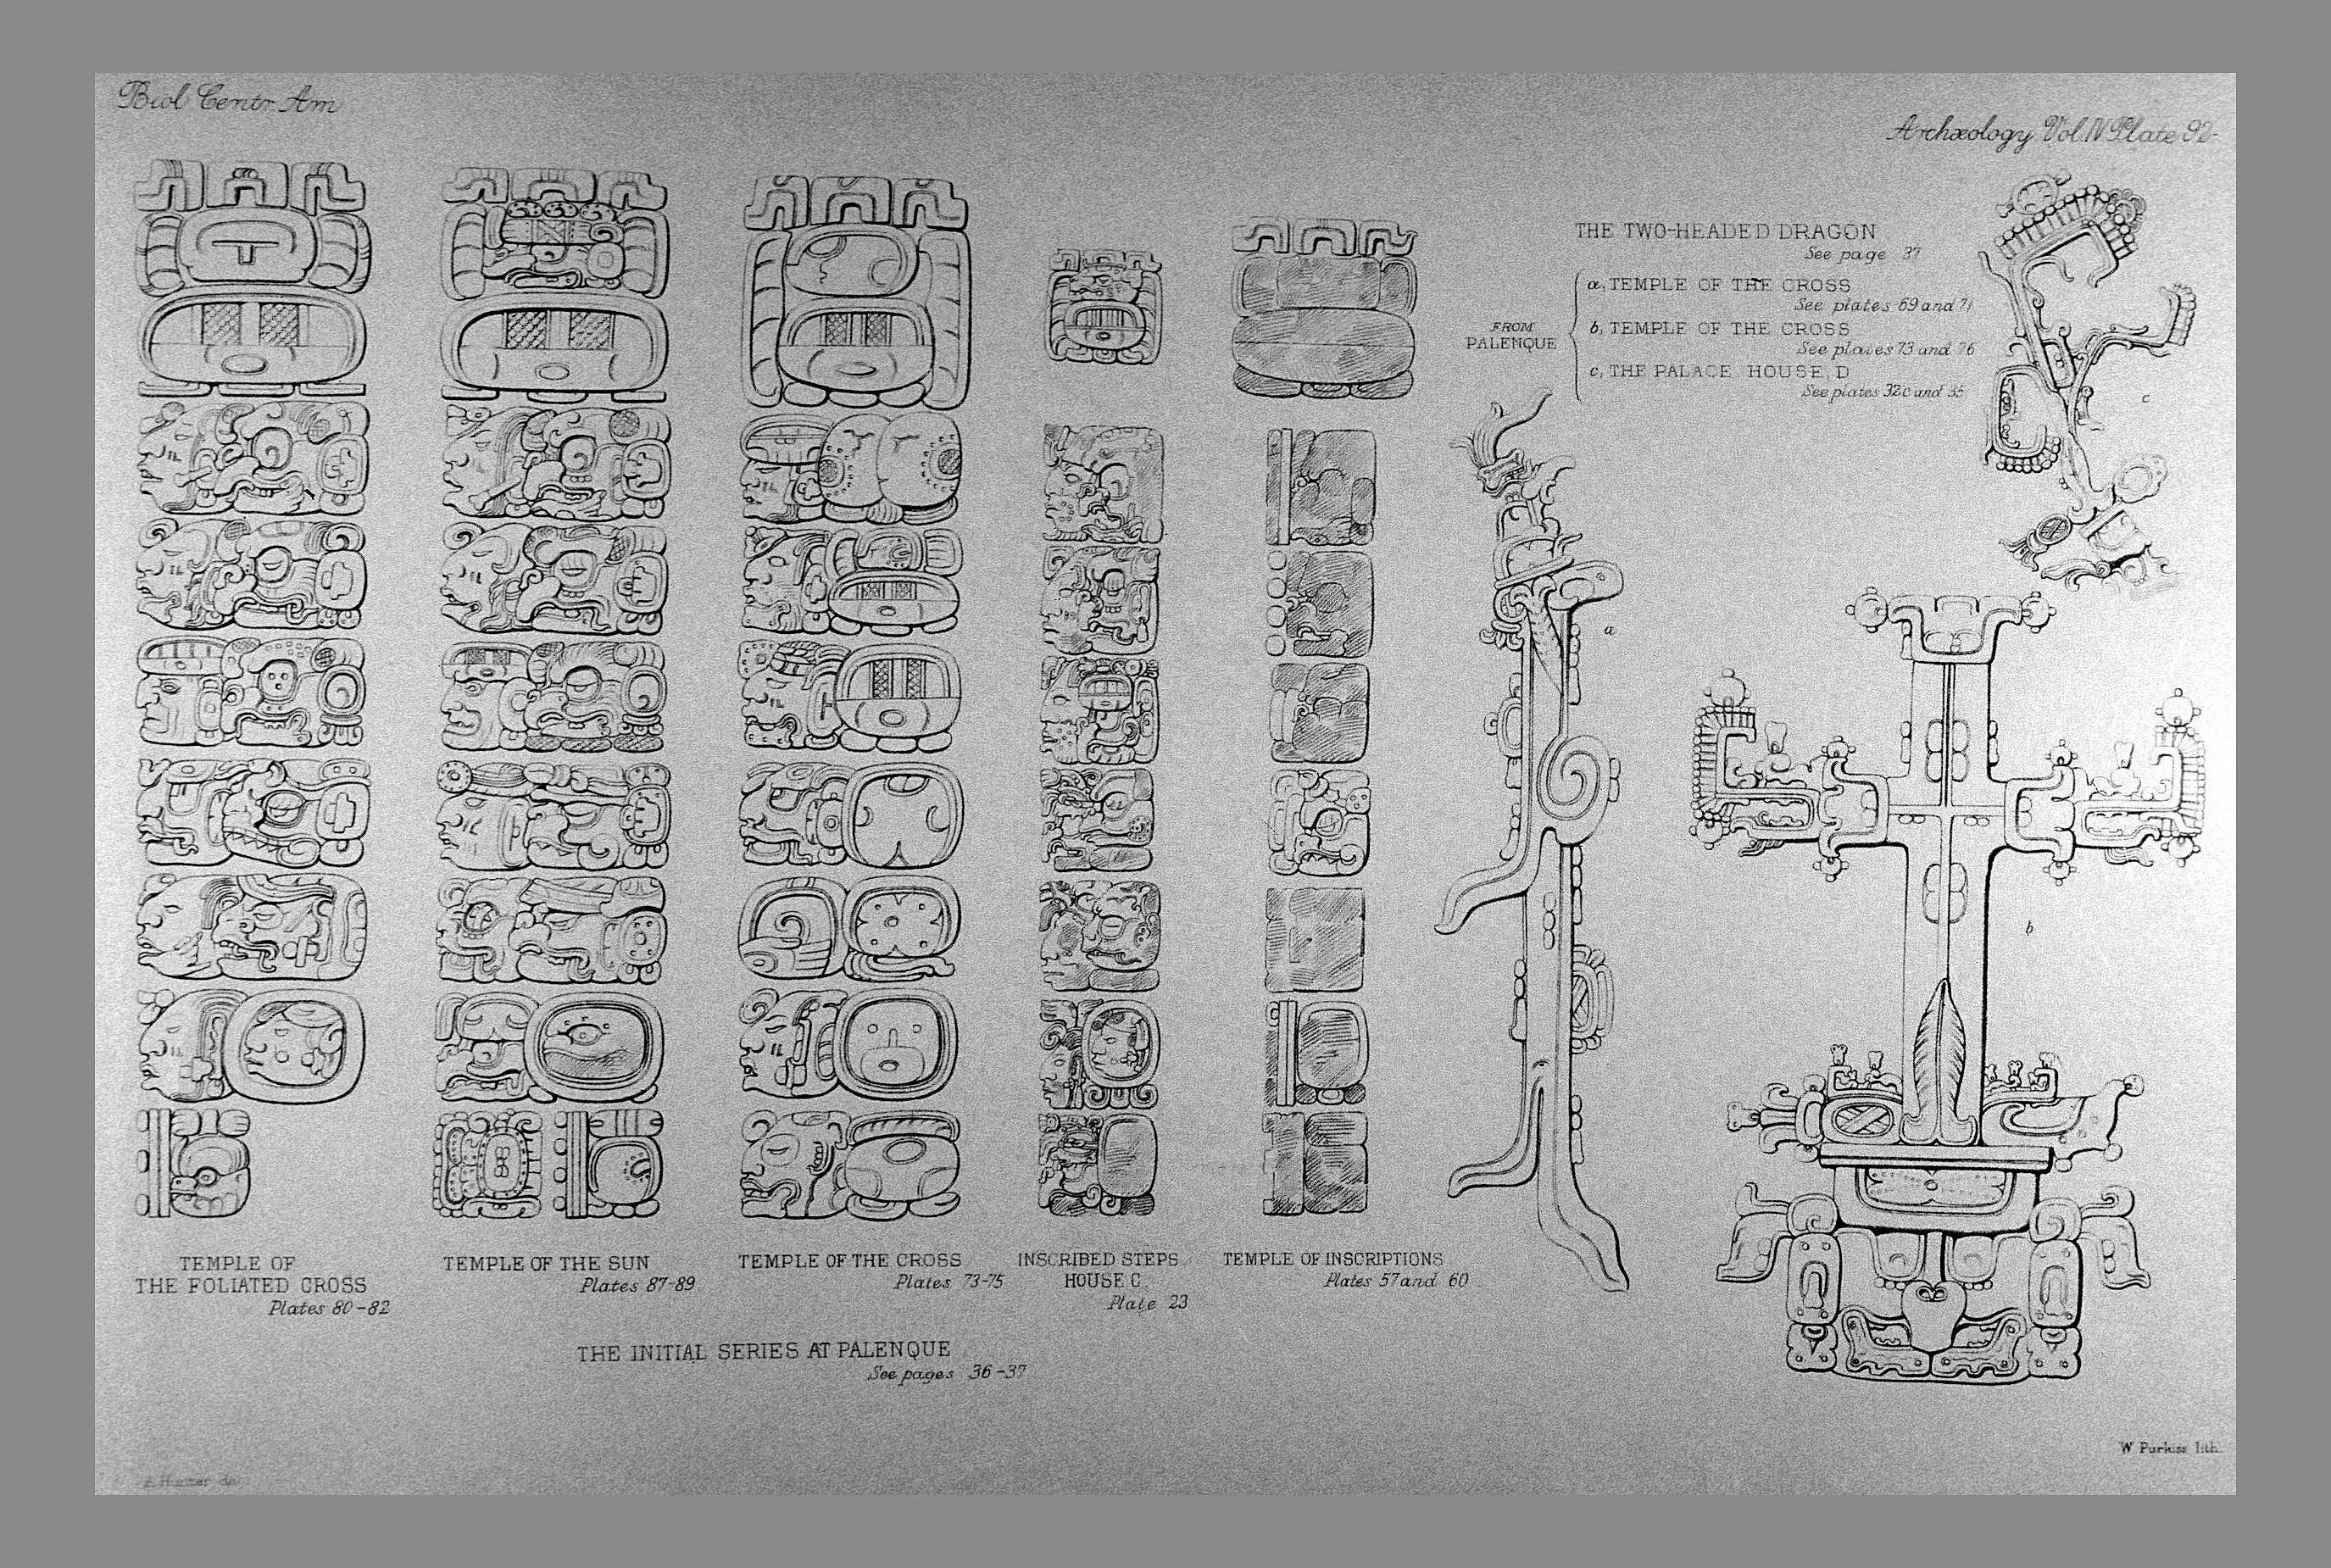 Biol Centr. Am
Archæology Vol. IV Plate 92.
THE TWO-HEADED DRAGON
See page 37
FROM
PALENQUE
a, TEMPLE OF THE CROSS
See plates 69 and 71
b, TEMPLE OF THE CROSS
See plates 73 and 76
c, THE PALACE HOUSE, D
See plates 32c and 35
c
a
b
TEMPLE OF
THE FOLIATED CROSS
Plates 80-82
TEMPLE OF THE SUN
Plates 87-89
TEMPLE OF THE CROSS
Plates 73-75
INSCRIBED STEPS
HOUSE C.
Plate 23
TEMPLE OF INSCRIPTIONS
Plates 57 and 60
THE INITIAL SERIES AT PALENQUE
See pages 36-37
A Hunter del
W Purkiss lith.